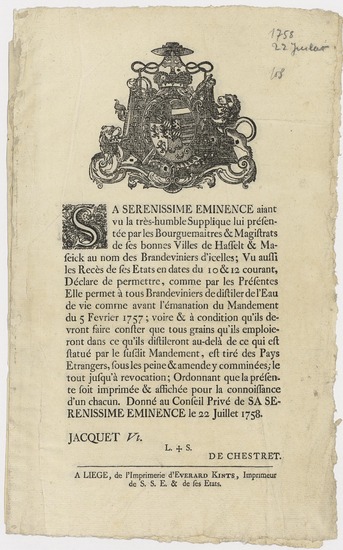 1758
22 Juillet
SA SERENISSIME EMINENCE aiant
vu la très-humble Supplique lui présen-
tée par les Bourguemaitres & Magistrats
de ses bonnes Villes de Hasselt & Ma-
seick au nom des Brandeviniers d'icelles; Vu aussi
les Recès de ses Etats en dates du 10 & 12 courant,
Déclare de permettre, comme par les Présentes
Elle permet à tous Brandeviniers de distiler de l'Eau
de vie comme avant l'émanation du Mandement
du 5 Fevrier 1757; voire & à condition qu'ils de-
vront faire conster que tous grains qu'ils emploie-
ront dans ce qu'ils distileront au-delà de ce qui est
statué par le susdit Mandement, est tiré des Pays
Etrangers, sous les peine & amende y comminées; le
tout jusqu'à revocation; Ordonnant que la présen-
te soit imprimée & affichée pour la connoissance
d'un chacun. Donné au Conseil Privé de SA SE-
RENISSIME EMINENCE le 22 Juillet 1758.
JACQUET Vt.
L. ✢ S.
DE CHESTRET.
A LIEGE, de l'Imprimerie d'EVERARD KINTS, Imprimeur
de S. S. E. & de ses Etats.